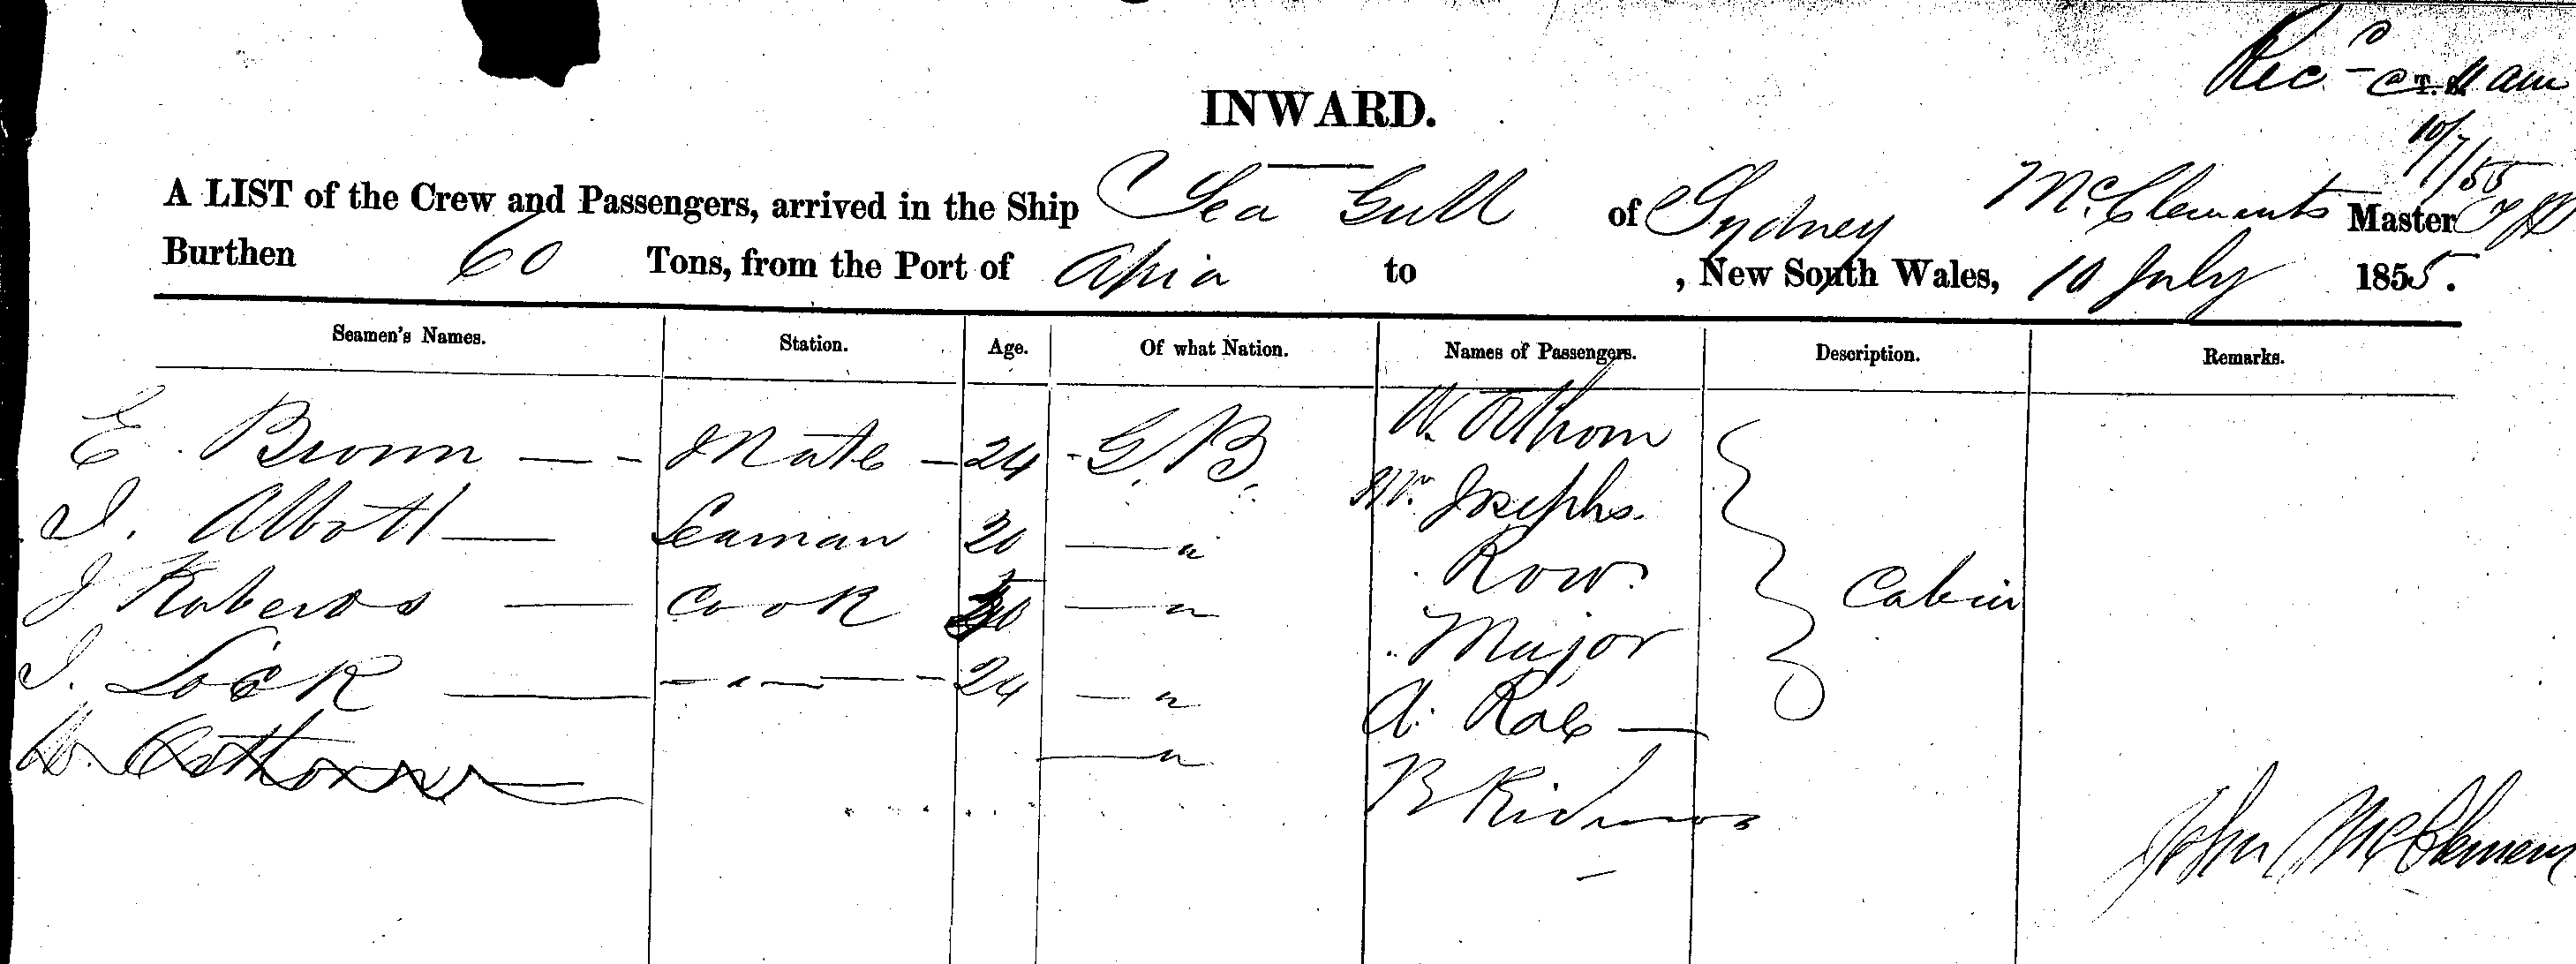 Recd @ 11 am
10/7/55
INWARD.
A LIST of the Crew and Passengers, arrived in the Ship Sea Gull of Sydney McClements Master
Burthen 60 Tons, from the Port of Apia to , New South Wales, 10 July 1855.
Seamen's Names. Station. Age. Of what Nation. Names of Passengers. Description. Remarks.
E Brown — - Mate - 24 - G. B. W. Othom
I. Abbott — Seaman 20 — " Mr. Josephs.
J Roberts — Cook — " Row. Cabin
I. Lock — - " - — - 24 — " Major
W. — " A. Rae —
B
John McClemens